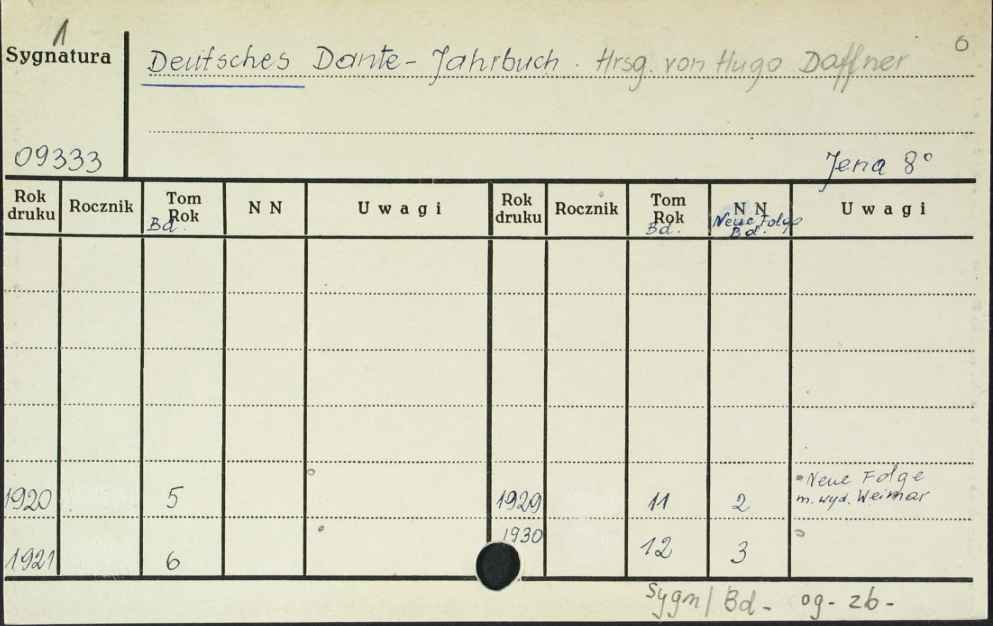 1
6
Sygnatura
Deutsches Dante-Jahrbuch. Hrsg. von Hugo Daffner
09333
Jena 8°
Rok druku Rocznik Tom Rok Bd. N N Uwagi Rok druku Rocznik Tom Rok Bd. N N Neue Folge Bd. Uwagi
1920 5 1929 11 2 Neue Folge
m. wyd. Weimar
1921 6 1930 12 3
Sygn/Bd - og - zb -